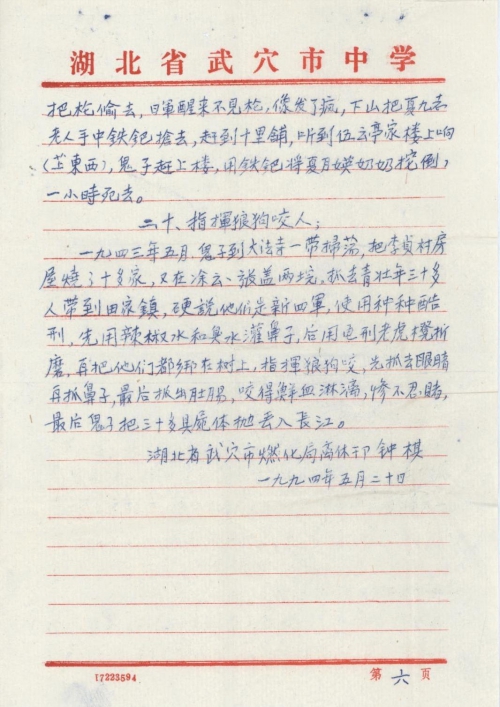 湖北省武穴市中学
把枪偷去，日軍醒来不见枪，像发了疯，下山把夏九
老人手中铁钯搶去，赶到十里舖，听到伍云亭家楼上响
（芷東西），鬼子赶上楼，用铁钯将夏瑛奶奶挖倒，
一小時死去。
二十、指揮狼狗咬人；
一九四三年五月，鬼子到大法寺一带掃荡，把李贞村房
屋燒了十多家，又在凃云、张盖两垸，抓去青壮年三十多
人带到田家鎮，硬説他们是新四軍，使用种种酷
刑，先用辣椒水和臭水灌鼻子，后用电刑老虎櫈折
磨，再把他们都绑在树上，指揮狼狗咬，先抓去眼睛
再抓鼻子，最后抓出肚肠，咬得鮮血淋漓，惨不忍睹，
最后鬼子把三十多具屍体抛丢入長江。
湖北省武穴市燃化局离休干 钟棋
一九九四年五月二十日
17223594
第六页